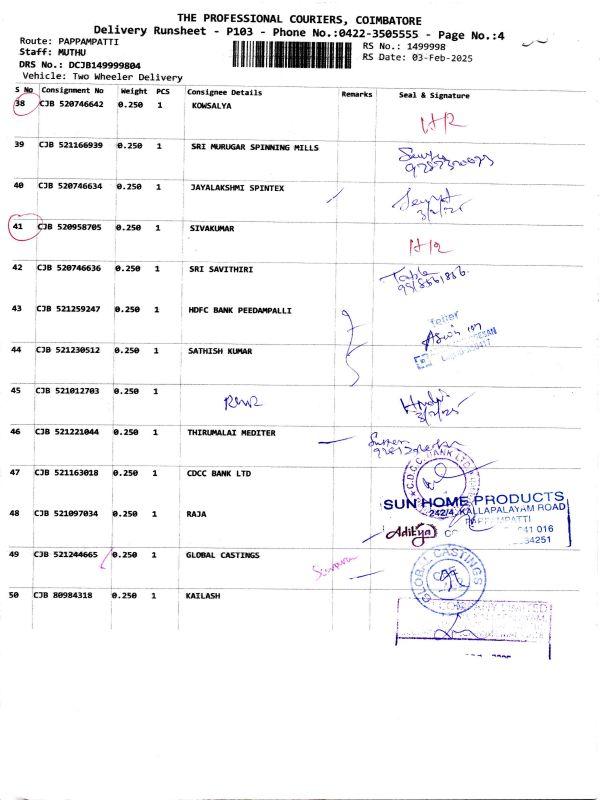 THE PROFESSIONAL COURIERS, COIMBATORE
Delivery Runsheet - P103 - Phone No.:0422-3505555 - Page No.:4
Route: PAPPAMPATTI
RS No.: 1499998
Staff: MUTHU
RS Date: 03-Feb-2025
DRS No.: DCJB149999804
Vehicle: Two Wheeler Delivery
S No Consignment No Weight PCS Consignee Details Remarks Seal & Signature
38 CJB 520746642 0.250 1 KOWSALYA
39 CJB 521166939 0.250 1 SRI MURUGAR SPINNING MILLS
40 CJB 520746634 0.250 1 JAYALAKSHMI SPINTEX
3/2/25
41 CJB 520958705 0.250 1 SIVAKUMAR
42 CJB 520746636 0.250 1 SRI SAVITHIRI
43 CJB 521259247 0.250 1 HDFC BANK PEEDAMPALLI
44 CJB 521230512 0.250 1 SATHISH KUMAR
45 CJB 521012703 0.250 1
3/2/25
46 CJB 521221044 0.250 1 THIRUMALAI MEDITER
47 CJB 521163018 0.250 1 CDCC BANK LTD
C.D.C.C. BANK LTD
SUN HOME PRODUCTS
242/4, KALLAPALAYAM ROAD
PAPPAMPATTI
48 CJB 521097034 0.250 1 RAJA Aditya
49 CJB 521244665 0.250 1 GLOBAL CASTINGS
GLOBAL CASTINGS
50 CJB 80984318 0.250 1 KAILASH
COMPANY LIMITED